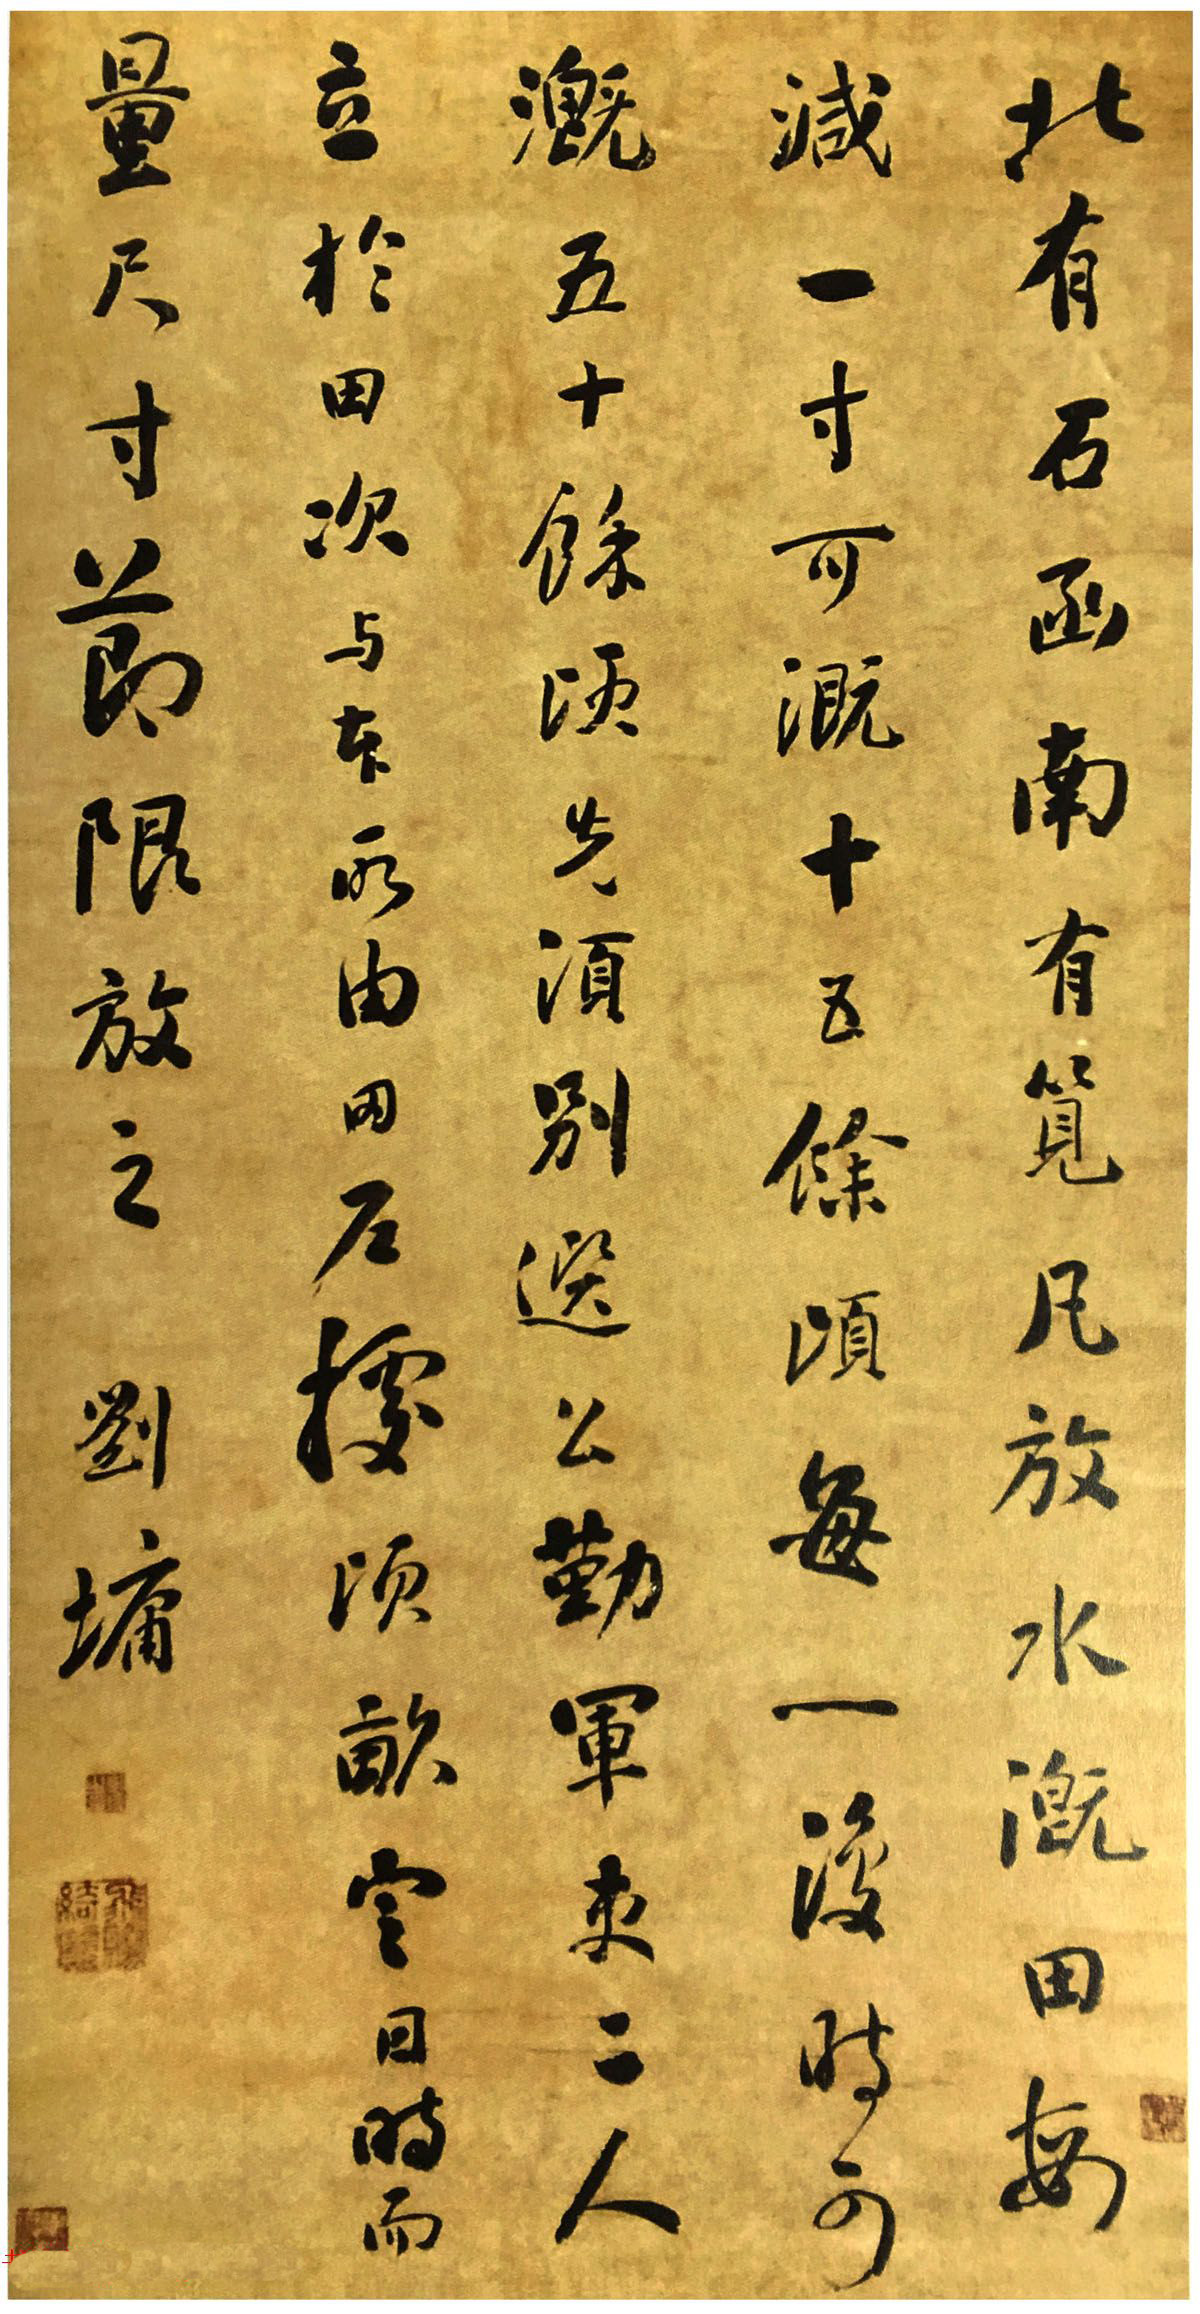 北有石函南有筧凡放水溉田每
減一寸可溉十五餘頃每一復時可
溉五十餘頃先須別選公勤軍吏二人
立於田次与本所由田户據頃畝定日時而
量尺寸節限放之 劉墉